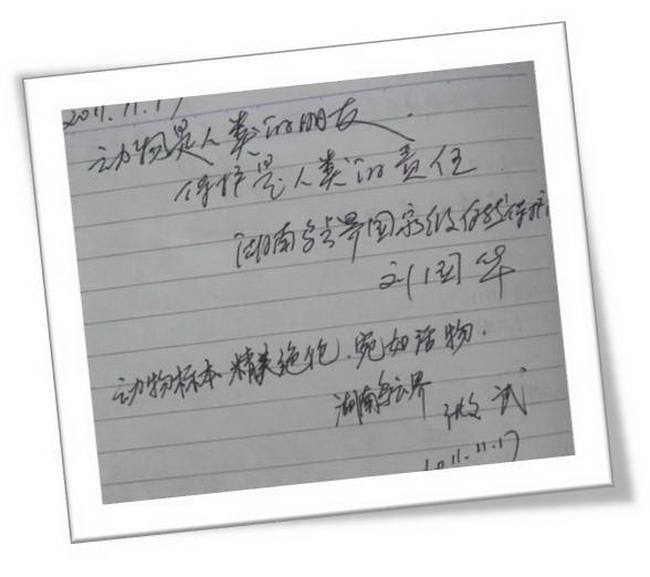 2011.11.17
动物是人类的朋友.
保护是人类的责任
湖南舜皇山国家级自然保护
刘国华
动物标本精美绝伦.宛如活物.
湖南
2011.11.17